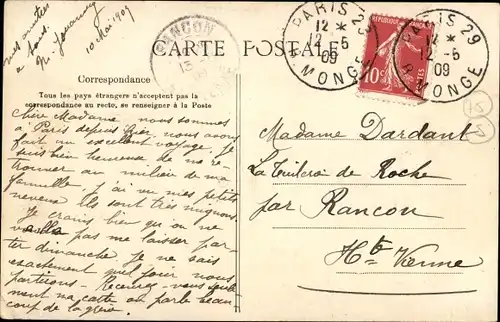 mes amitiés
à tous.
10 Mai 1909
RANCON
13
09
CARTE POSTALE
PARIS 29
12 *
12-5
09
R. MONGE
10c
PARIS 29
12 *
12-5
09
R. MONGE
Correspondance
Tous les pays étrangers n'acceptent pas la
correspondance au recto, se renseigner à la Poste
Chère Madame nous sommes
à Paris depuis hier nous avons
fait un excellent voyage. Je
suis bien heureuse de me re
trouver au milieu de ma
famille, j'ai vu mes petits
neveux Ils sont très mignons.
Je crains bien qu'on ne
pas me laisser par-
tir dimanche. Je ne sais
exactement quel jour nous
partirons - Recevez-vous
ment ma carte on parle beau
coup de la grève.
Madame Dardant
La Tuilerie de Roche
par Rancon
Hte Vienne